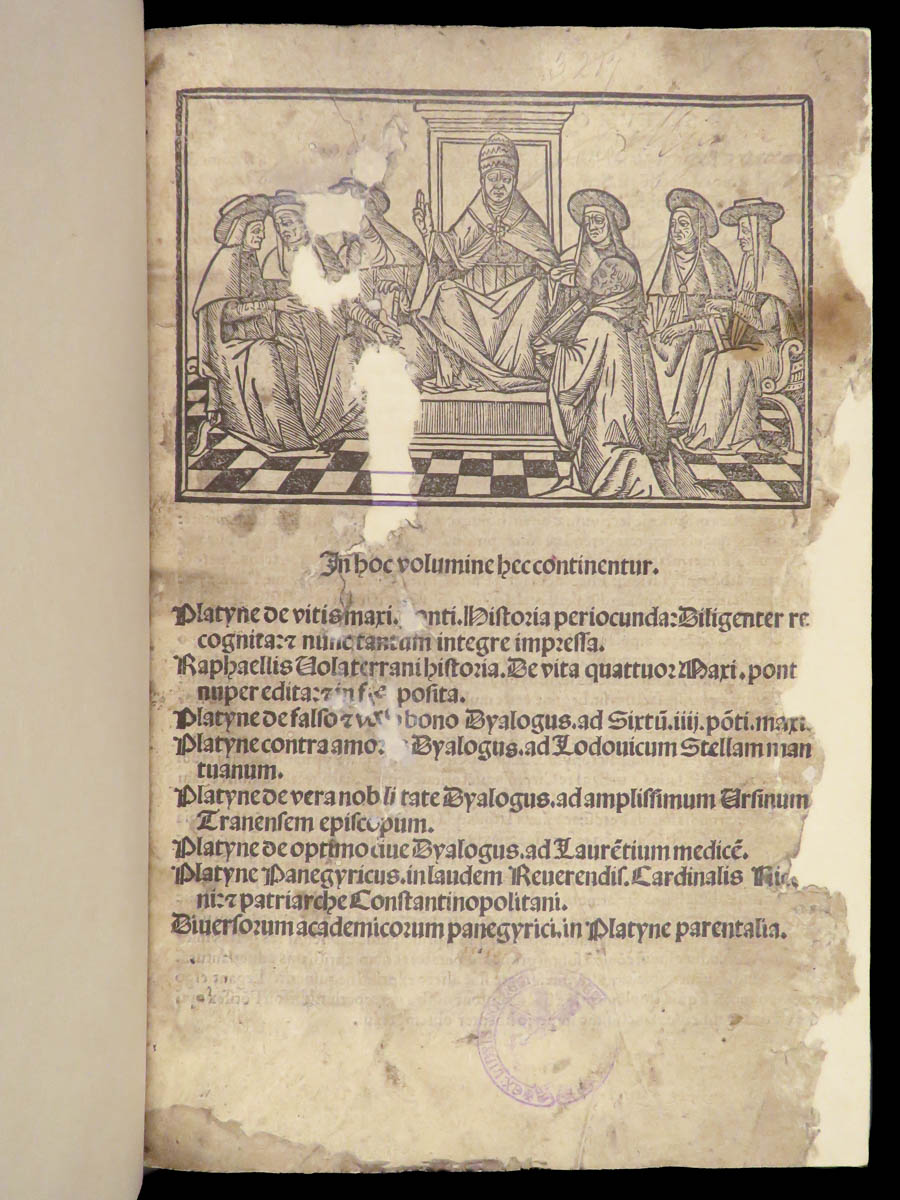 3219
In hoc volumine hec continentur.
Platyne de vitis maxi. ponti. Historia periocunda: Diligenter re
cognita: ⁊ nunc tantum integre impressa.
Raphaellis Uolaterrani historia. De vita quattuor Maxi. pont
nuper edita: ⁊ in posita.
Platyne de falso ⁊ bono Dyalogus. ad Sixtū. iiij. pōti. maxi.
Platyne contra amo Dyalogus. ad Lodouicum Stellam man
tuanum.
Platyne de vera nobilitate Dyalogus. ad amplissimum Ursinum
Tranensem episcopum.
Platyne de optimo ciue Dyalogus. ad Laurētium medicē.
Platyne Panegyricus. in laudem Reuerendis. Cardinalis
ni: ⁊ patriarche Constantinopolitani.
Diuersorum academicorum panegyrici. in Platyne parentalia.
EX LIBRIS